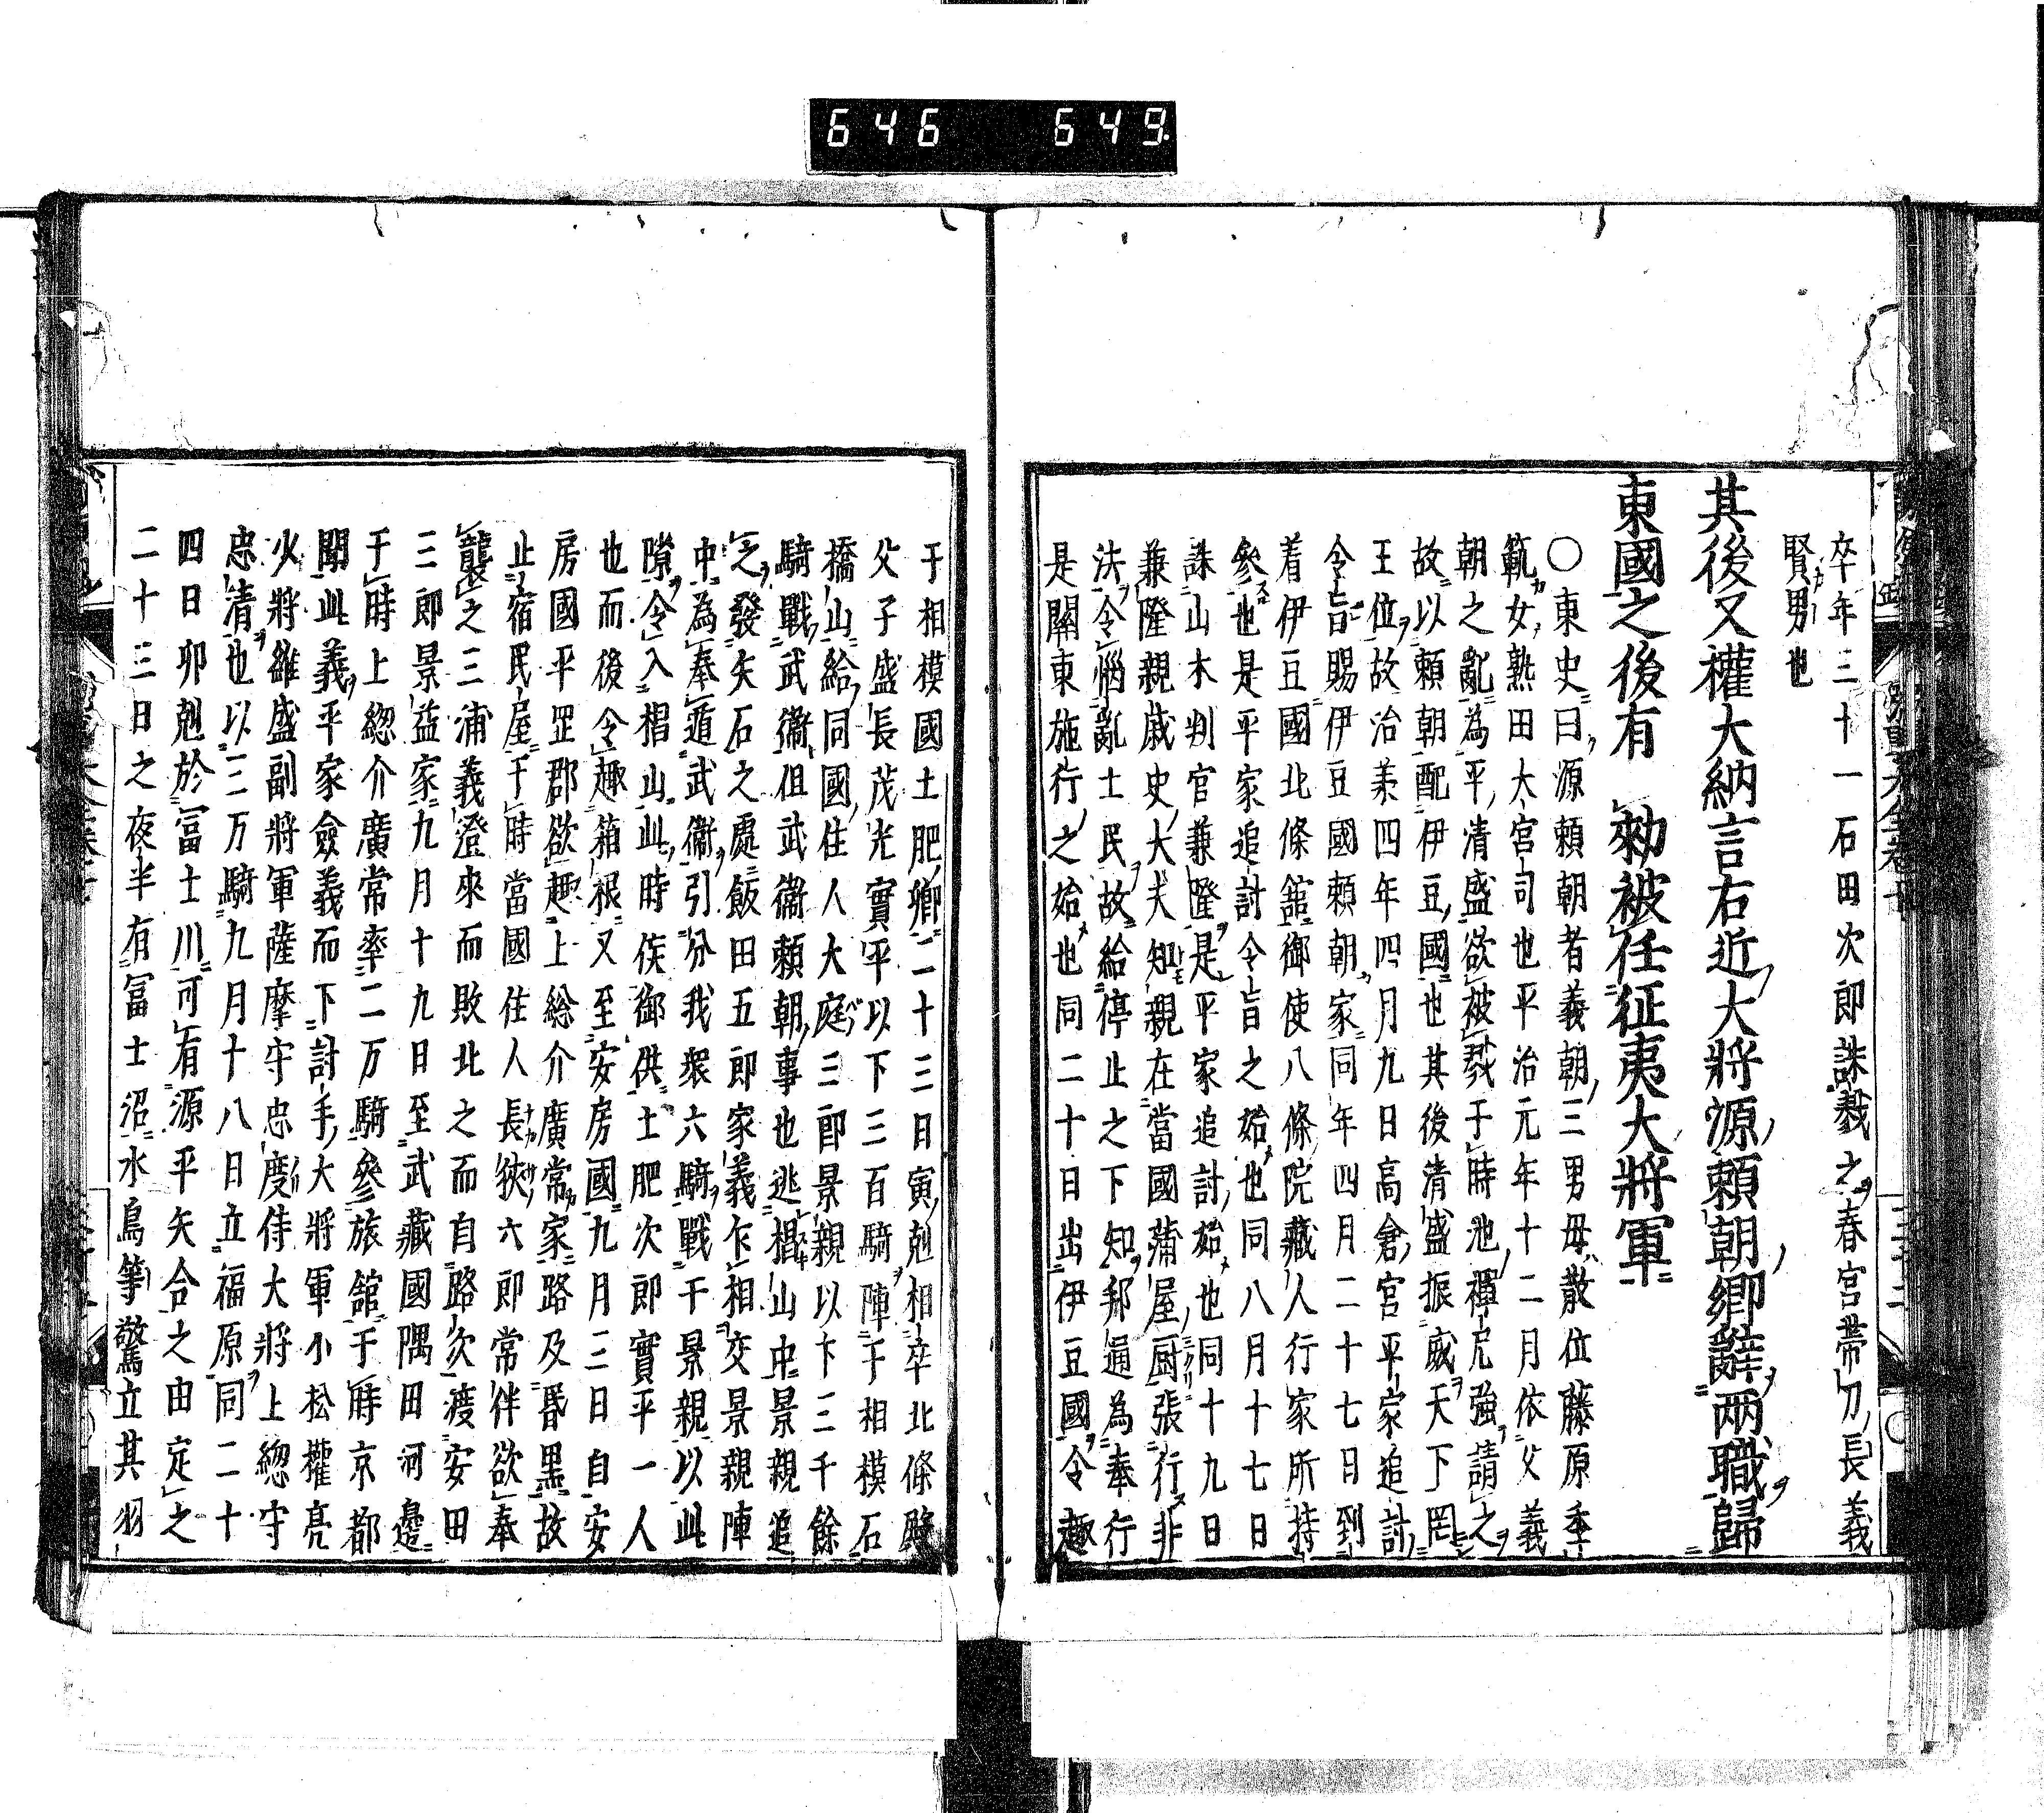 646 649
卒年三十一石田次郎誅戮之春宮帶刀長義
賢男也
其後又權大納言右近大將源頼朝卿辭兩職歸
東國之後有 勅被任征夷大將軍
〇東史曰源頼朝者義朝三男母散位藤原季
範女熱田大宮司也平治元年十二月依父義
朝之亂為平清盛欲被戮于時池禪尼強請之
故以頼朝配伊豆國也其後清盛振威天下罔
王位故治美四年四月九日高倉宮平家追討
令旨賜伊豆國頼朝家同年四月二十七日到
着伊豆國北條舘御使八條院藏人行家所持
參也是平家追討令旨之始也同八月十七日
誅山木判官兼隆是平家追討始也同十九日
兼隆親戚史大夫知親在當國蒲屋厨張行非
法令惱亂士民故給停止之下知邦通為奉行
是關東施行之始也同二十日出伊豆國令趣
于相模國土肥鄉二十三日寅剋相卒北條殿
父子盛長茂光實平以下三百騎陣于相模石
橋山給同國住人大庭三郎景親以下三千餘
騎戰武衞伹武衞頼朝事也逃椙山中景親追
之發矢石之處飯田五郎家義乍相交景親陣
中為奉遁武衞引分我衆六騎戰于景親以此
隙令入椙山此時侯御供土肥次郎實平一人
也而後令趣箱根又至安房國九月三日自安
房國平罡郡欲趣上総介廣常家路及昏黒故
止宿民屋于時當國住人長狹六郎常伴欲奉
襲之三浦義澄來而敗北之而自路次渡安田
三郎景益家九月十九日至武藏國隅田河邊
于時上總介廣常率二万騎參旅舘于時京都
聞此義平家僉義而下討手大將軍小松權亮
少將維盛副將軍薩摩守忠度侍大將上總守
忠清也以三万騎九月十八日立福原同二十
四日卯剋於冨士川可有源平矢合之由定之
二十三日之夜半有冨士沼水鳥等驚立其羽